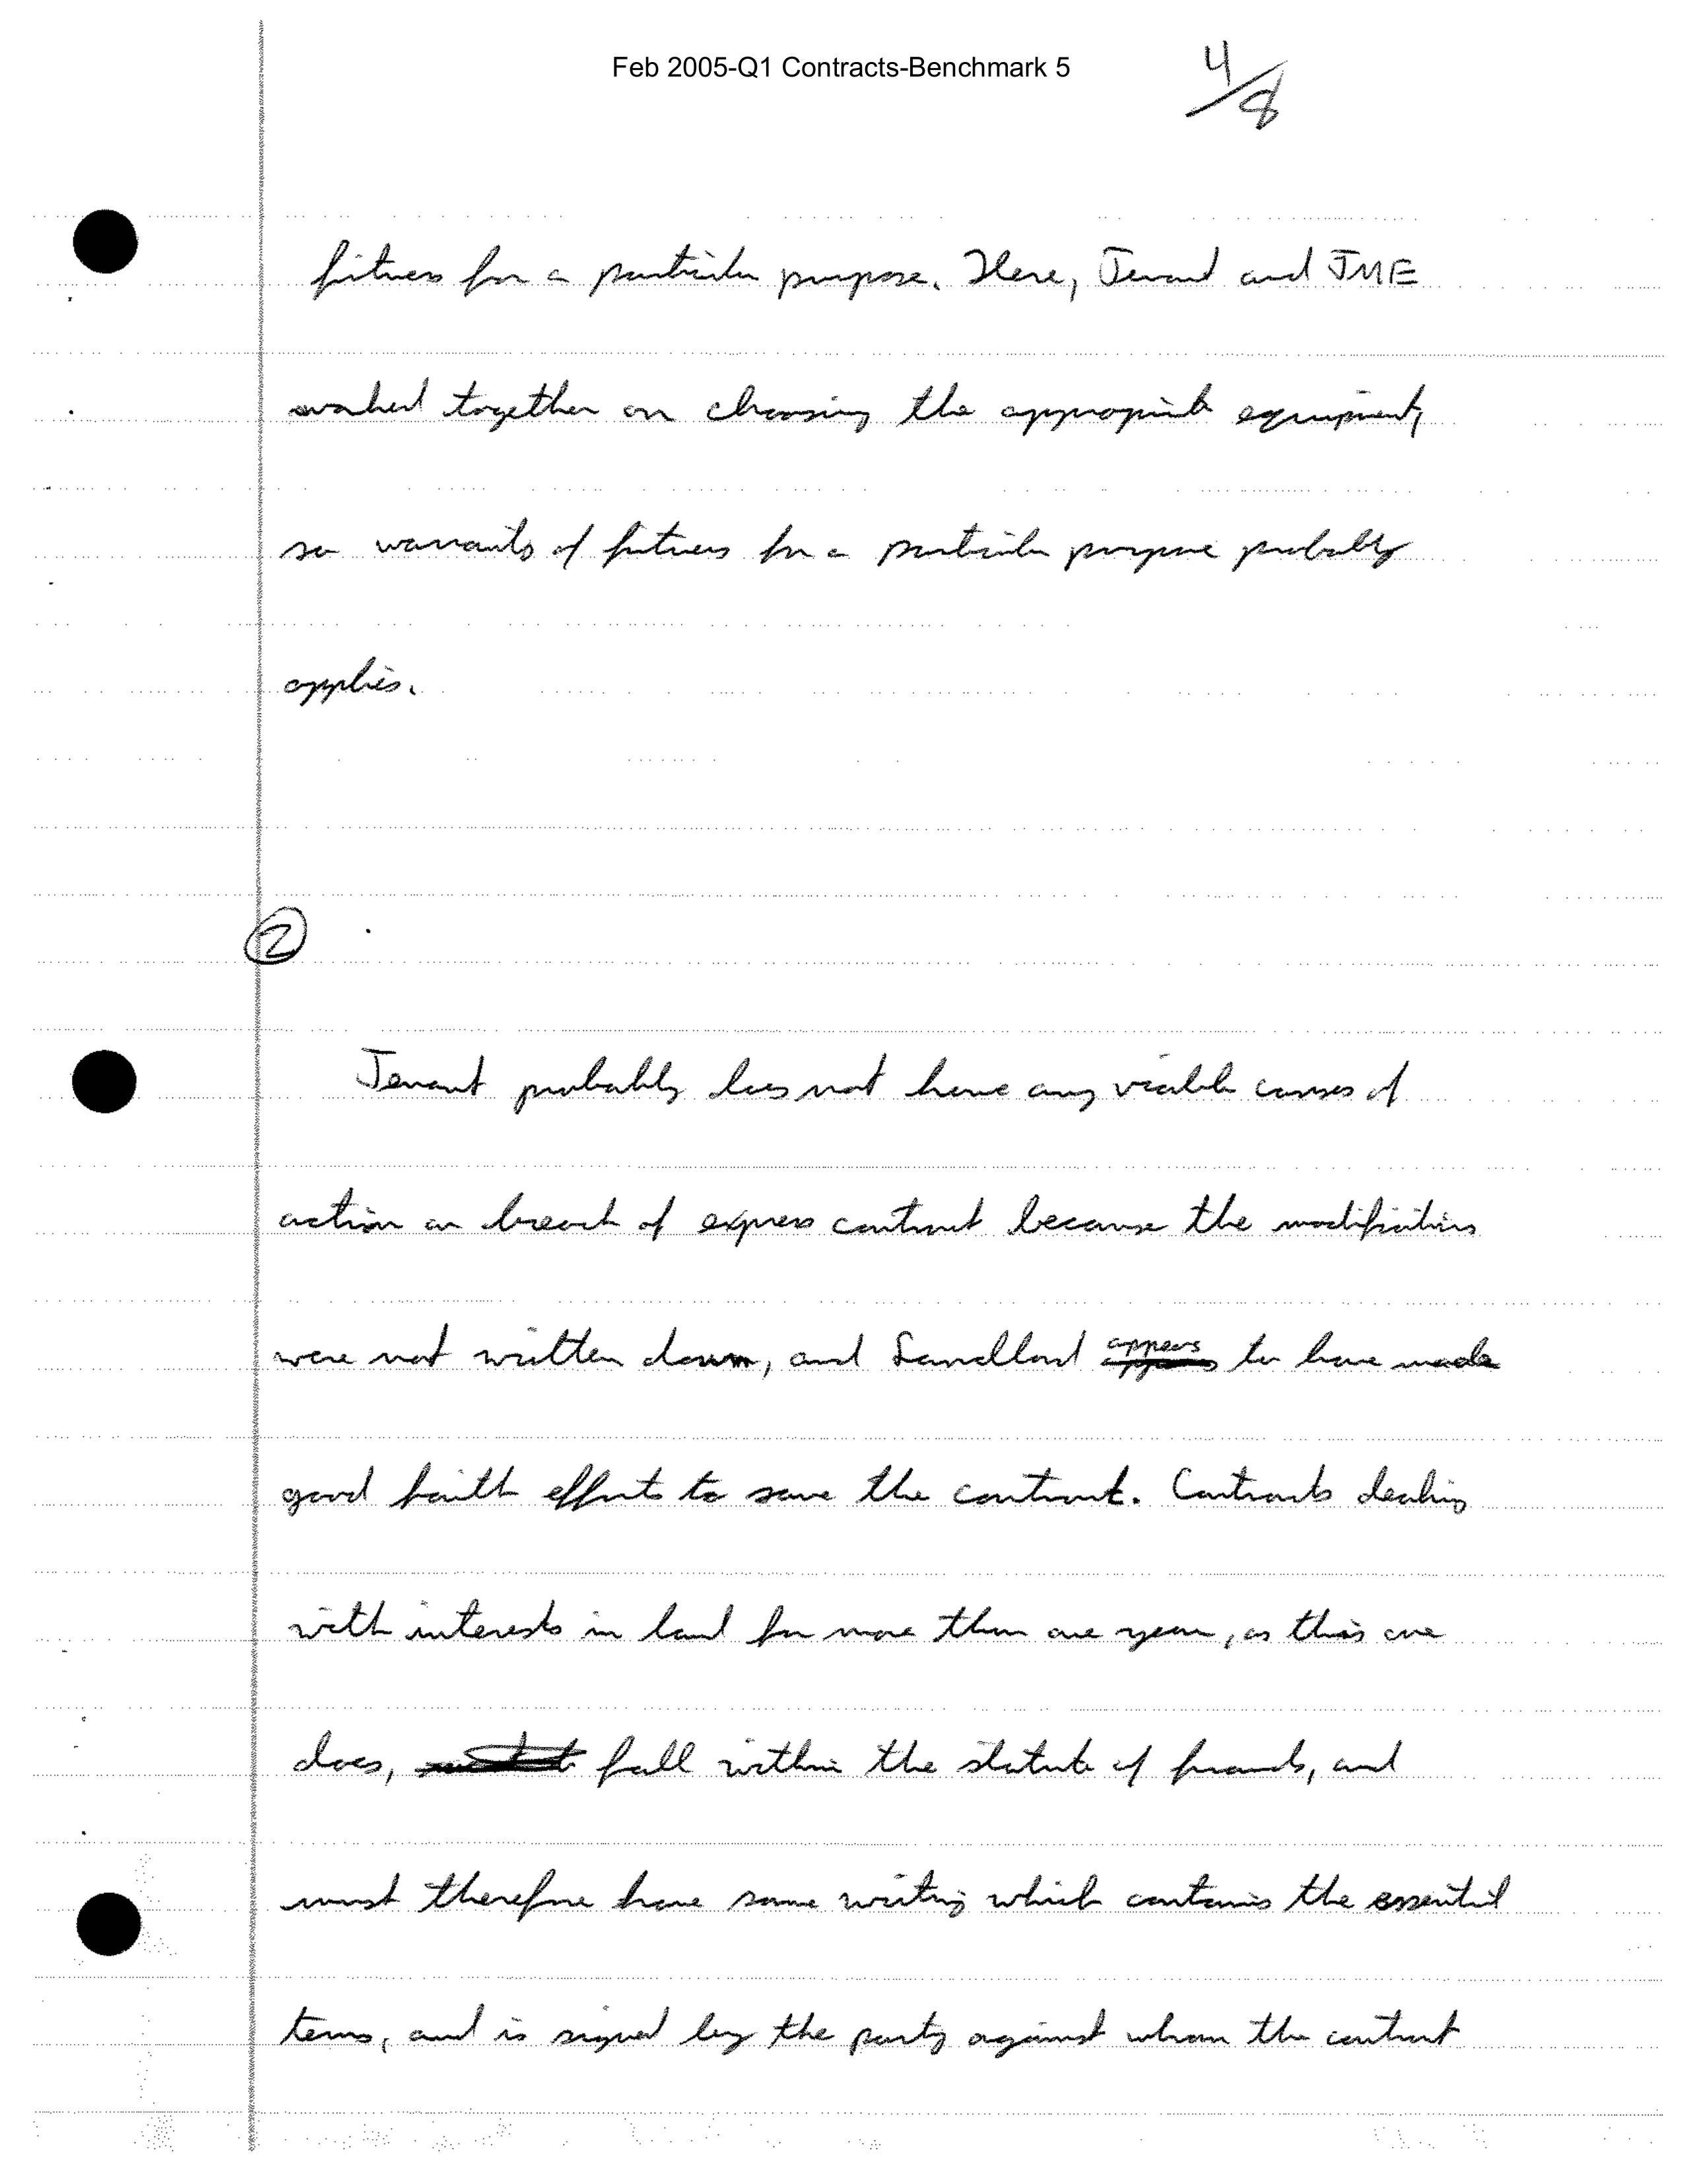 Feb 2005-Q1 Contracts-Benchmark 5
4/8
fitness for a particular purpose. Here, Tenant and JME
worked together on choosing the appropriate equipment,
so warranty of fitness for a particular purpose probably
applies.
2
Tenant probably does not have any viable causes of
action on breach of express contract because the modifications
were not written down, and Landlord appears to have made
good faith efforts to save the contract. Contracts dealing
with interests in land for more than one year, as this one
does, fall within the statute of frauds, and
must therefore have some writing which contains the essential
terms, and is signed by the party against whom the contract